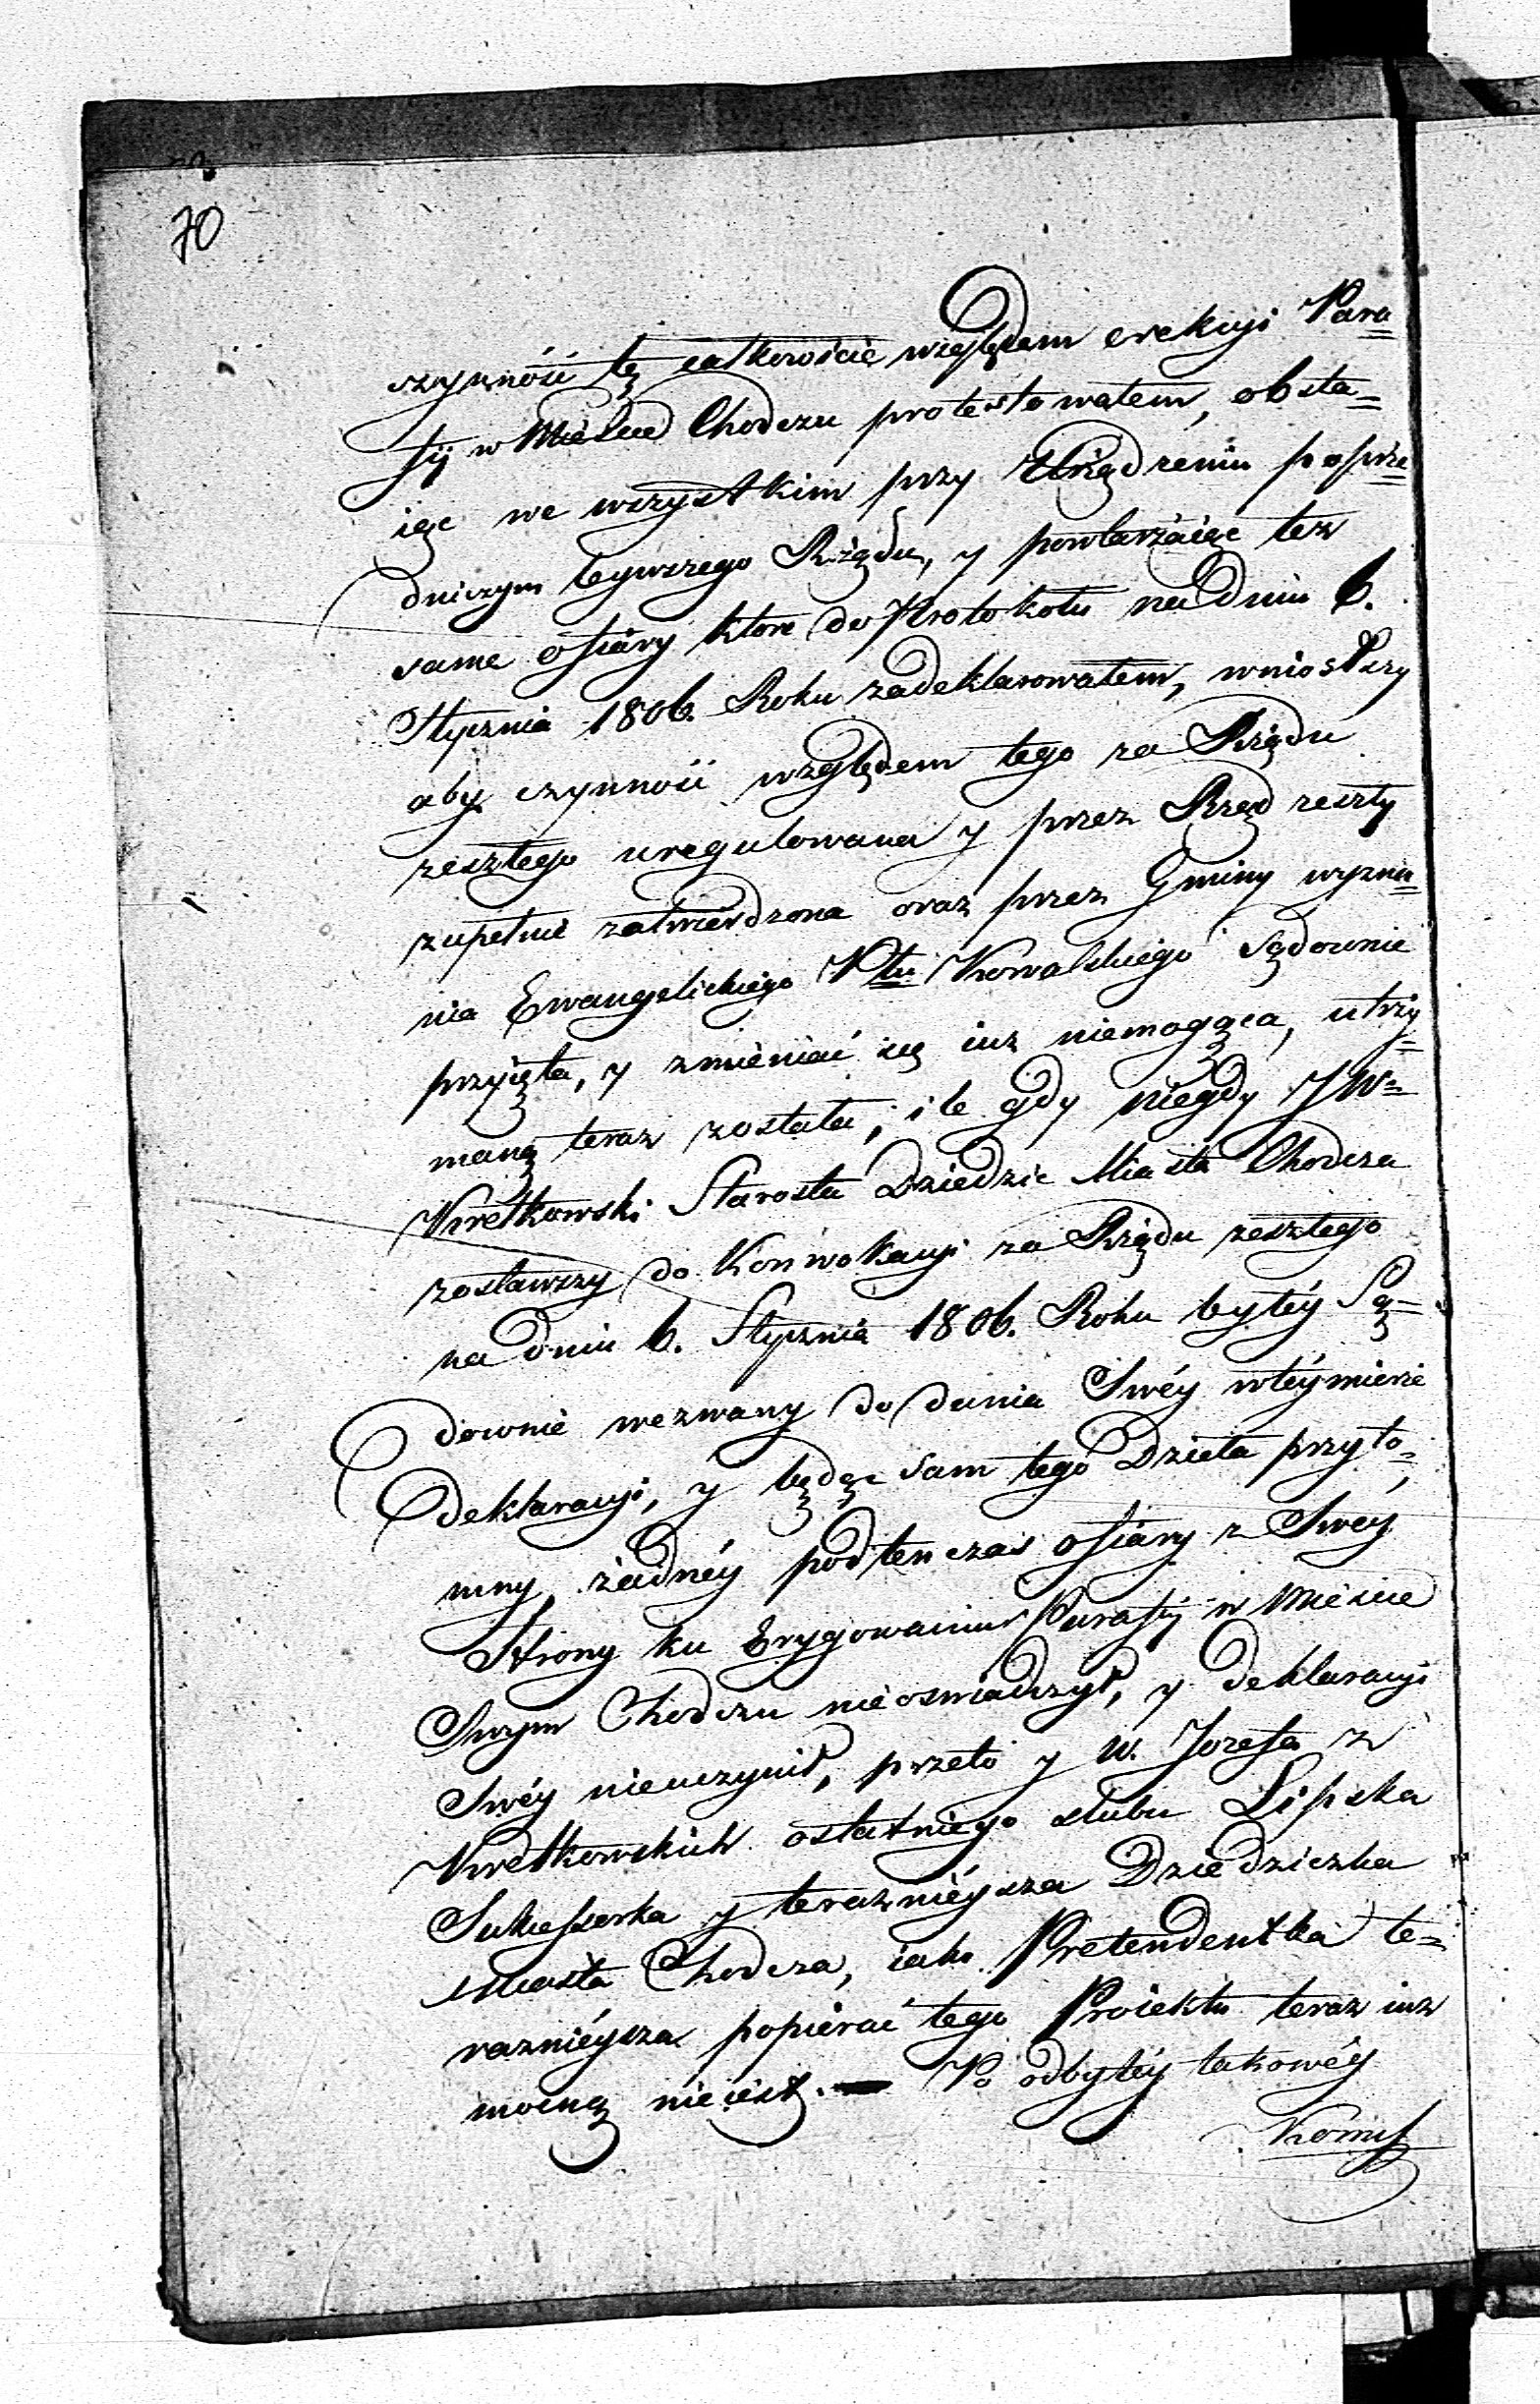 70
czynność tę całkowicie względem erekcyi Para=
fij w Mieście Chodczu protestowałem, obsta=
iąc we wszystkim przy Urządzeniu poprze=
dniczym bywszego Rządu, y powtarzaiąc tez
same ofiary które do Protokołu na dniu 6.
Stycznia 1806. Roku zadeklarowałem, wniosłszy
aby czynność względem tego za Rządu
zeszłego uregulowana y przez Rząd zeszły
zupełnie zatwierdzona oraz przez Gminy wyzna=
nia Ewangelickiego Ptu Kowalskiego Sądownie
przyięta, y zmieniać się iuz niemogąca, utrzy=
maną teraz została; ile gdy niegdy JW=
Kretkowski Starosta Dziedzic Miasta Chodcza
zostawszy do Konwokacyi za Rządu zeszłego
na dniu 6. Stycznia 1806. Roku byłéy Są=
downie wezwany do dania Swéy wtéymierze
deklaracyi, y będąc sam tego Dzieła przyto=
mny żadnéy podtenczas ofiary z Swey
Strony ku Erygowaniu Parafij w Mieście
Swym Chodczu nieoswiadczył, y deklaracyi
Swéy nieuczynił, przeto y W. Jozefa z
Kretkowskich ostatniego slubu Lipska
Sukcesserka y teraznieysza Dziedziczka
Miasta Chodcza, iako Pretendentka te=
raznieysza popierać tego Proiektu teraz iuz
mocną nie iest. — Po odbytéy takowéy
Komiss